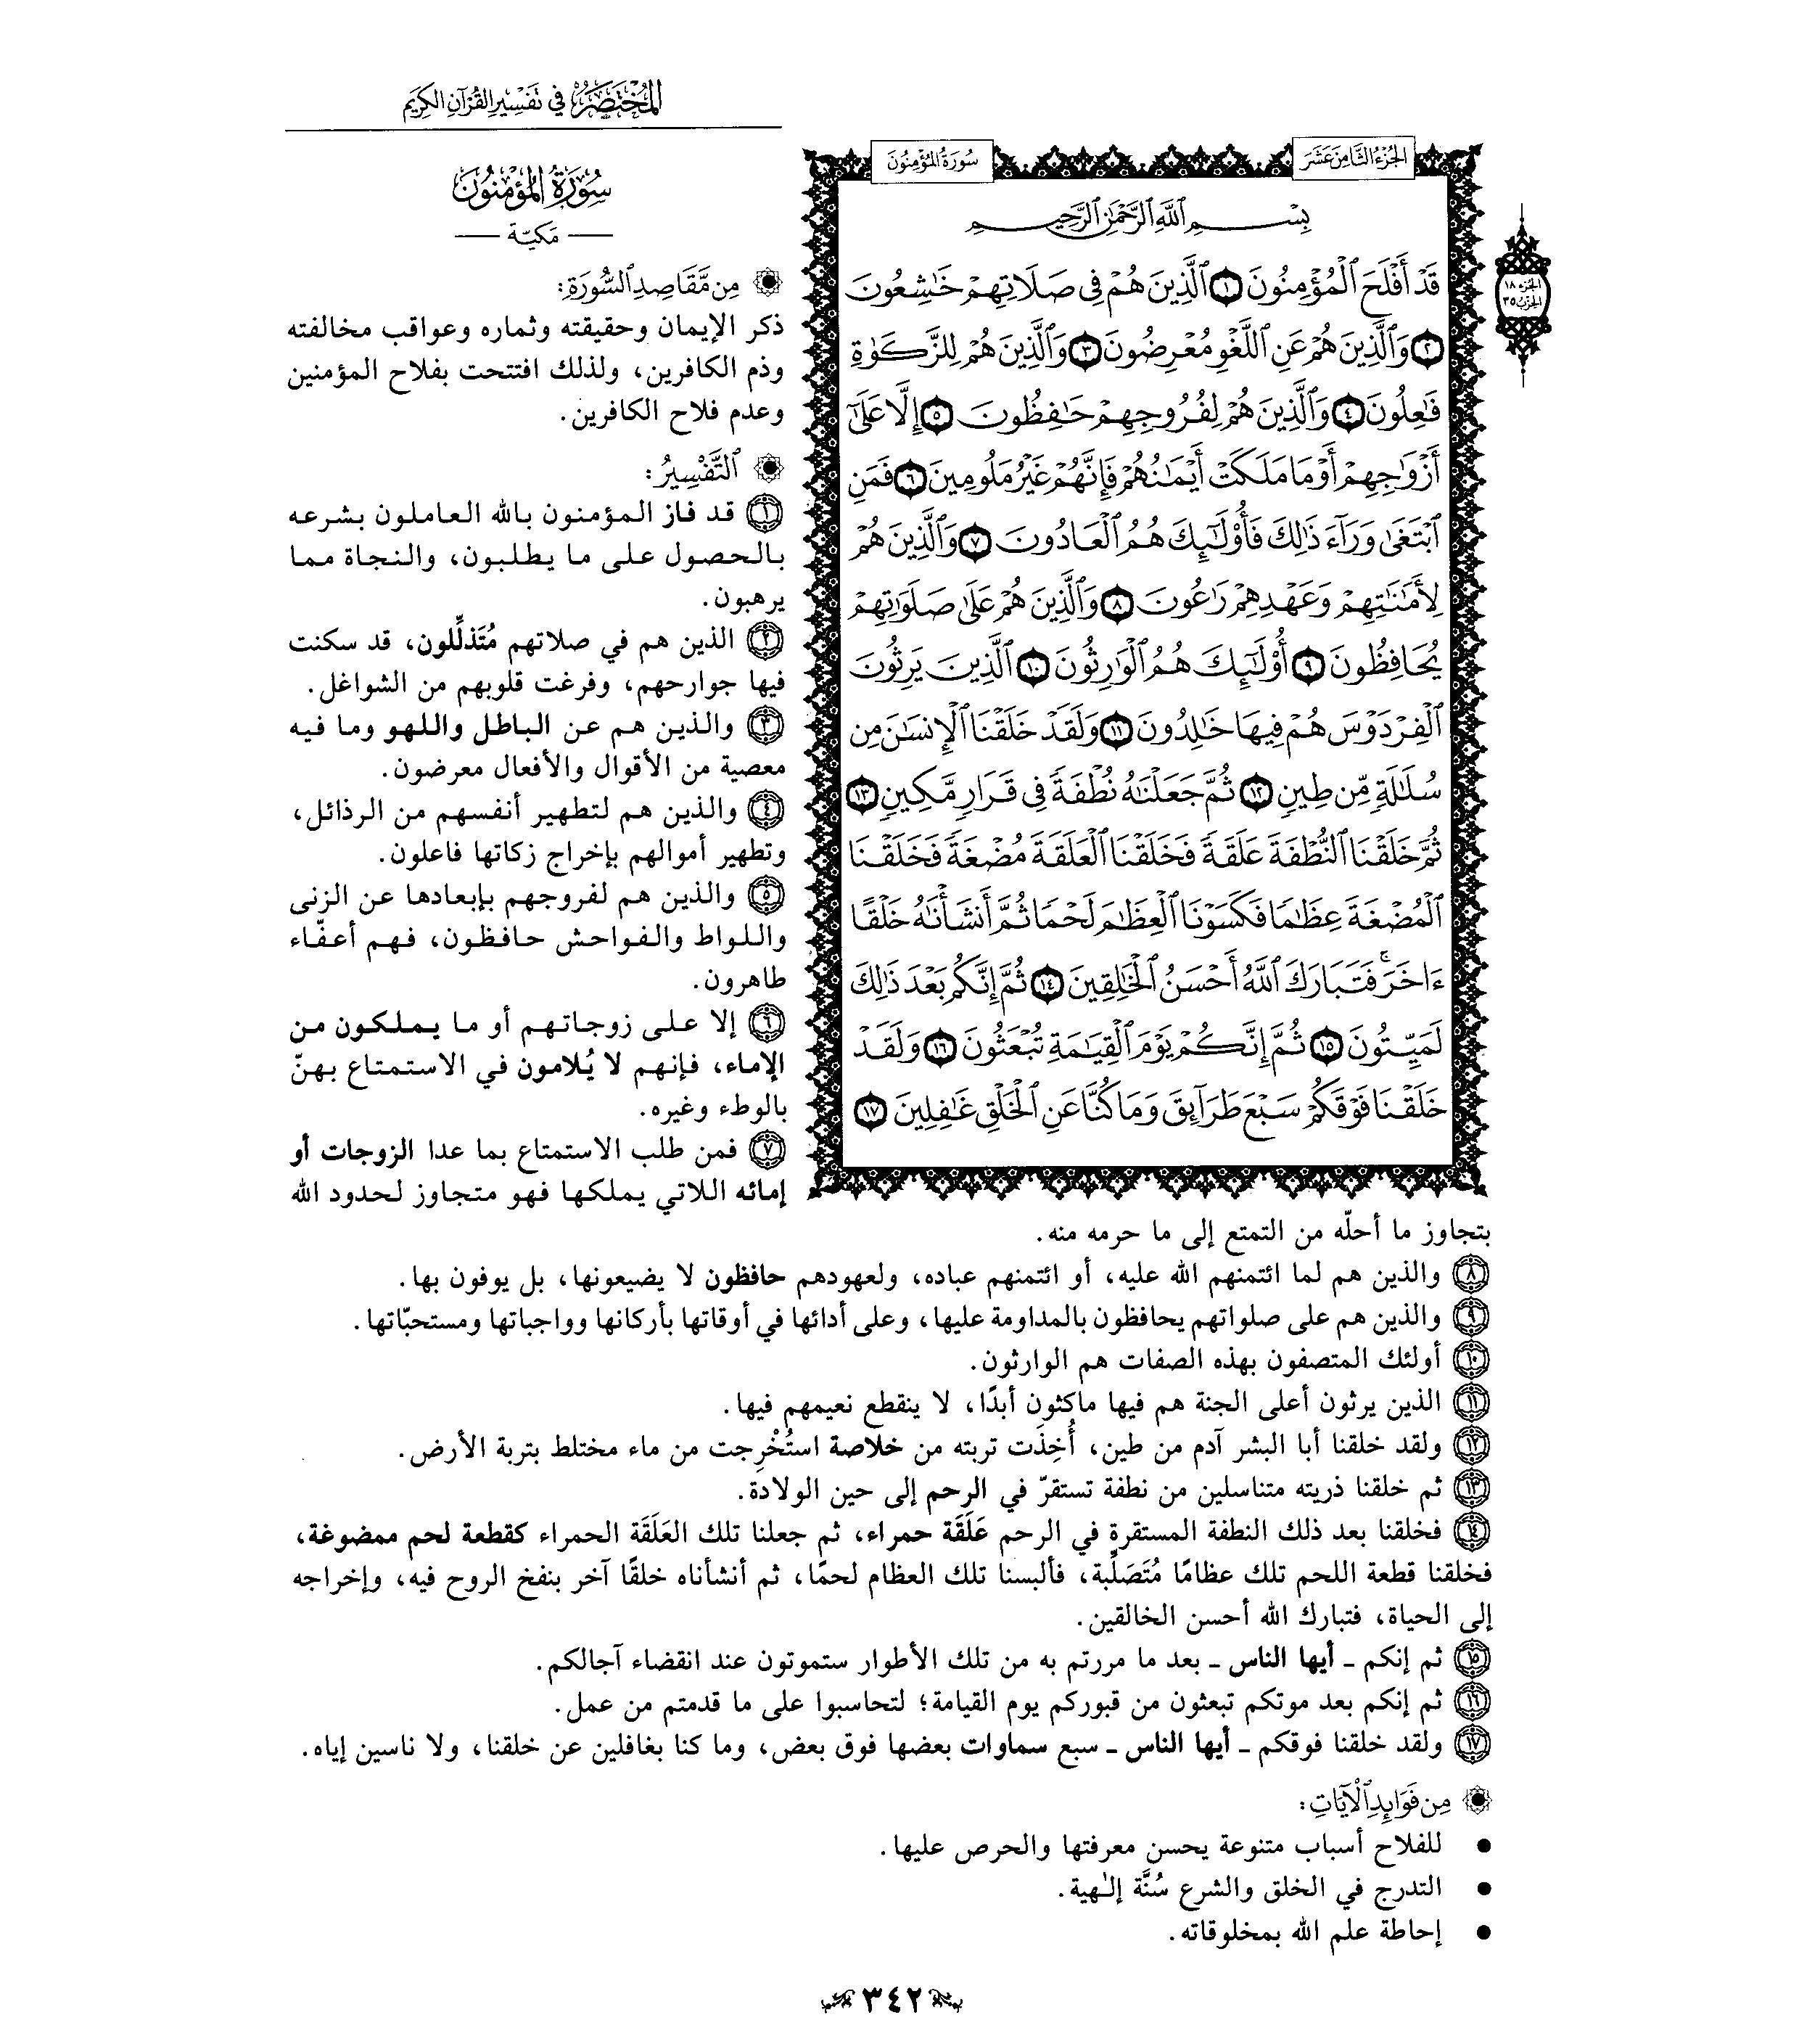 المختصر في تفسير القرآن الكريم
الجزء الثامن عشر
سورة المؤمنون
الجزء ١٨
الحزب ٣٥
بِسْمِ ٱللَّهِ ٱلرَّحْمَٰنِ ٱلرَّحِيمِ
قَدْ أَفْلَحَ ٱلْمُؤْمِنُونَ ١ ٱلَّذِينَ هُمْ فِى صَلَاتِهِمْ خَٰشِعُونَ
٢ وَٱلَّذِينَ هُمْ عَنِ ٱللَّغْوِ مُعْرِضُونَ ٣ وَٱلَّذِينَ هُمْ لِلزَّكَوٰةِ
فَٰعِلُونَ ٤ وَٱلَّذِينَ هُمْ لِفُرُوجِهِمْ حَٰفِظُونَ ٥ إِلَّا عَلَىٰٓ
أَزْوَٰجِهِمْ أَوْ مَا مَلَكَتْ أَيْمَٰنُهُمْ فَإِنَّهُمْ غَيْرُ مَلُومِينَ ٦ فَمَنِ
ٱبْتَغَىٰ وَرَآءَ ذَٰلِكَ فَأُو۟لَٰٓئِكَ هُمُ ٱلْعَادُونَ ٧ وَٱلَّذِينَ هُمْ
لِأَمَٰنَٰتِهِمْ وَعَهْدِهِمْ رَٰعُونَ ٨ وَٱلَّذِينَ هُمْ عَلَىٰ صَلَوَٰتِهِمْ
يُحَافِظُونَ ٩ أُو۟لَٰٓئِكَ هُمُ ٱلْوَٰرِثُونَ ١٠ ٱلَّذِينَ يَرِثُونَ
ٱلْفِرْدَوْسَ هُمْ فِيهَا خَٰلِدُونَ ١١ وَلَقَدْ خَلَقْنَا ٱلْإِنسَٰنَ مِن
سُلَٰلَةٍ مِّن طِينٍ ١٢ ثُمَّ جَعَلْنَٰهُ نُطْفَةً فِى قَرَارٍ مَّكِينٍ ١٣
ثُمَّ خَلَقْنَا ٱلنُّطْفَةَ عَلَقَةً فَخَلَقْنَا ٱلْعَلَقَةَ مُضْغَةً فَخَلَقْنَا
ٱلْمُضْغَةَ عِظَٰمًا فَكَسَوْنَا ٱلْعِظَٰمَ لَحْمًا ثُمَّ أَنشَأْنَٰهُ خَلْقًا
ءَاخَرَ ۚ فَتَبَارَكَ ٱللَّهُ أَحْسَنُ ٱلْخَٰلِقِينَ ١٤ ثُمَّ إِنَّكُم بَعْدَ ذَٰلِكَ
لَمَيِّتُونَ ١٥ ثُمَّ إِنَّكُمْ يَوْمَ ٱلْقِيَٰمَةِ تُبْعَثُونَ ١٦ وَلَقَدْ
خَلَقْنَا فَوْقَكُمْ سَبْعَ طَرَآئِقَ وَمَا كُنَّا عَنِ ٱلْخَلْقِ غَٰفِلِينَ ١٧
سورة المؤمنون
مكية
من مقاصد السورة:
ذكر الإيمان وحقيقته وثماره وعواقب مخالفته
وذم الكافرين، ولذلك افتتحت بفلاح المؤمنين
وعدم فلاح الكافرين.
التفسير:
١ قد فاز المؤمنون بالله العاملون بشرعه
بالحصول على ما يطلبون، والنجاة مما
يرهبون.
٢ الذين هم في صلاتهم مُتَذلِّلون، قد سكنت
فيها جوارحهم، وفرغت قلوبهم من الشواغل.
٣ والذين هم عن الباطل واللهو وما فيه
معصية من الأقوال والأفعال معرضون.
٤ والذين هم لتطهير أنفسهم من الرذائل،
وتطهير أموالهم بإخراج زكاتها فاعلون.
٥ والذين هم لفروجهم بإبعادها عن الزنى
واللواط والفواحش حافظون، فهم أعفّاء
طاهرون.
٦ إلا على زوجاتهم أو ما يملكون من
الإماء، فإنهم لا يُلامون في الاستمتاع بهنّ
بالوطء وغيره.
٧ فمن طلب الاستمتاع بما عدا الزوجات أو
إمائه اللاتي يملكها فهو متجاوز لحدود الله
بتجاوز ما أحلّه من التمتع إلى ما حرمه منه.
٨ والذين هم لما ائتمنهم الله عليه، أو ائتمنهم عباده، ولعهودهم حافظون لا يضيعونها، بل يوفون بها.
٩ والذين هم على صلواتهم يحافظون بالمداومة عليها، وعلى أدائها في أوقاتها بأركانها وواجباتها ومستحبّاتها.
١٠ أولئك المتصفون بهذه الصفات هم الوارثون.
١١ الذين يرثون أعلى الجنة هم فيها ماكثون أبدًا، لا ينقطع نعيمهم فيها.
١٢ ولقد خلقنا أبا البشر آدم من طين، أُخِذَت تربته من خلاصة استُخْرِجت من ماء مختلط بتربة الأرض.
١٣ ثم خلقنا ذريته متناسلين من نطفة تستقرّ في الرحم إلى حين الولادة.
١٤ فخلقنا بعد ذلك النطفة المستقرة في الرحم عَلَقَة حمراء، ثم جعلنا تلك العَلَقَة الحمراء كقطعة لحم ممضوغة،
فخلقنا قطعة اللحم تلك عظامًا مُتَصَلِّبة، فألبسنا تلك العظام لحمًا، ثم أنشأناه خلقًا آخر بنفخ الروح فيه، وإخراجه
إلى الحياة، فتبارك الله أحسن الخالقين.
١٥ ثم إنكم ـ أيها الناس ـ بعد ما مررتم به من تلك الأطوار ستموتون عند انقضاء آجالكم.
١٦ ثم إنكم بعد موتكم تبعثون من قبوركم يوم القيامة؛ لتحاسبوا على ما قدمتم من عمل.
١٧ ولقد خلقنا فوقكم ـ أيها الناس ـ سبع سماوات بعضها فوق بعض، وما كنا بغافلين عن خلقنا، ولا ناسين إياه.
من فوائد الآيات:
● للفلاح أسباب متنوعة يحسن معرفتها والحرص عليها.
● التدرج في الخلق والشرع سُنَّة إلـٰهية.
● إحاطة علم الله بمخلوقاته.
٣٤٢